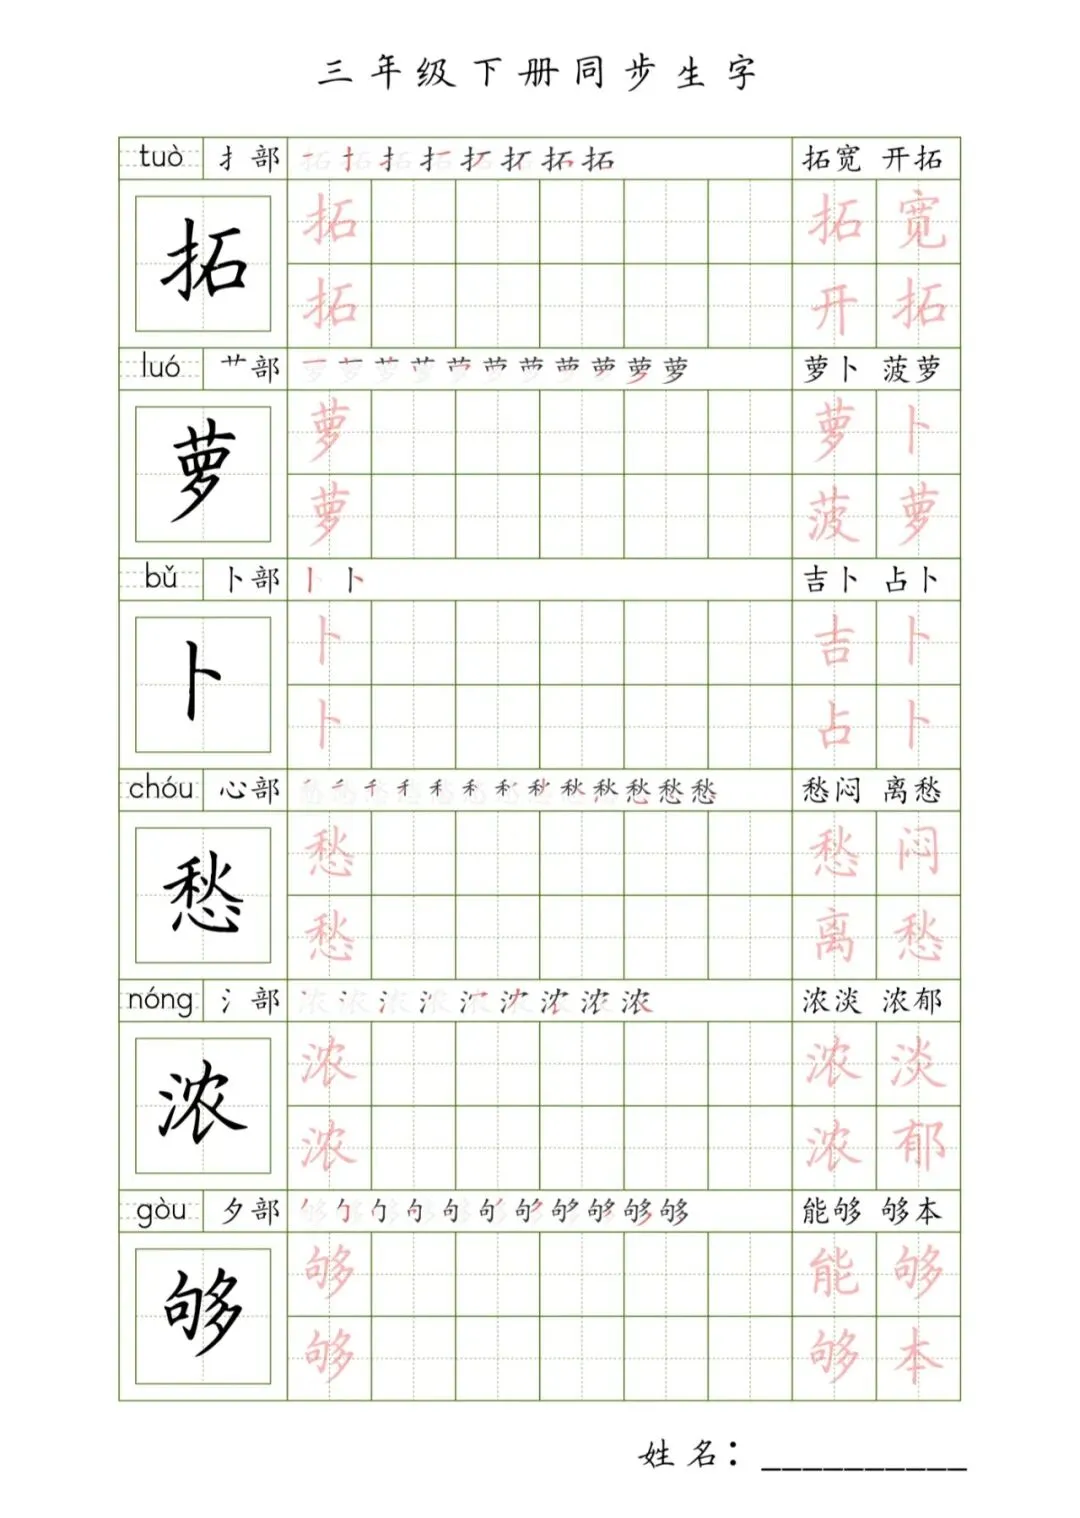 三年级下册同步生字
tuò 扌部 拓宽 开拓
拓 拓 拓 宽
拓 开 拓
luó 艹部 萝卜 菠萝
萝 萝 萝 卜
萝 菠 萝
bǔ 卜部 吉卜 占卜
卜 卜 吉 卜
卜 占 卜
chóu 心部 愁闷 离愁
愁 愁 愁 闷
愁 离 愁
nóng 氵部 浓淡 浓郁
浓 浓 浓 淡
浓 浓 郁
gòu 夕部 能够 够本
够 够 能 够
够 够 本
姓名：__________